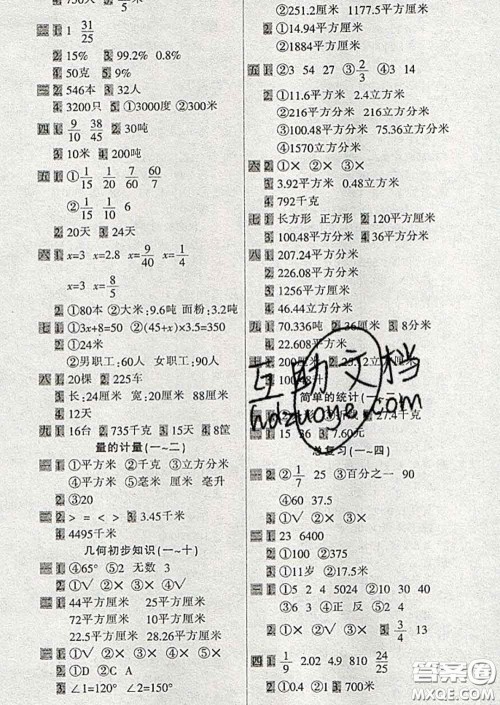 二 1 31/25
2 15% 3 99.2% 0.8%
4 50克 5 9%
2 546本 3 32人
4 3200只 5 ①3000度 ②900米
四 1 9/10 38/45 2 30吨
3 10米 4 200吨
五 1 ①1/15 1/20 7/60 60/7
②1/15 1/10 6
2 20天 3 24天
六 1 x=3 x=2.8 x=9/40 x=1/4
x=3 x=8/5
2 ①80本 ②大米:9.6吨 面粉:3.2吨
七 1 ①3x+8=50 ②(45+x)×3.5=350
2 ①24米
②男职工:60人 女职工:90人
八 1 20棵 2 225车
3 长:24厘米 宽:20厘米 高:16厘米
4 12天
九 1 16台 2 735千克 3 15米 4 8筐
量的计量(一~二)
一 1 ①平方米 ②千克 ③立方分米
④平方米 ⑤毫米 厘米 毫升
2 ③20
二 1 > = < > 3 3.45千米
4 4495千米
几何初步知识(一~十)
一 1 ④65° ⑤2 无数 3
2 ①√ ②× ③√
二 1 44平方厘米 25平方厘米
72平方厘米 10平方厘米
22.5平方厘米 28.26平方厘米
1 ①√ ②× ③× ④√ ⑤×
2 ①D ②C A
3 ∠1=120° ∠2=150°
②251.2厘米 1177.5平方厘米
2 ①14.94平方米
②1884平方厘米
五 1 ②3 54 27 ③2/3 ④3 14
2 ①11.6平方米 2.4立方米
②216平方分米 216立方分米
③100.48平方分米 75.36立方分米
④6.5立方分米
六 2 ①× ②× ③× ④×
3 3.92平方米 0.48立方米
4 792千克
七 1 长方形 正方形 2 120平方厘米
3 100.48平方米 4 36平方米
八 1 207.24平方米
2 226.08平方米
3 1256平方厘米
4 46.44立方米
九 1 70.336吨 2 36厘米 3 8分米
4 22.608平方米
简单的统计(一
互助文档
hdzuoye.com
3 7.60元
总复习(一~四)
一 2 ②1/7 25 ③百分之一 90
④60 37.5
3 ①× ②× ③×
二 1 23 6400
2 ①100 ②375
3 ①11岁 ②17.5米
三 1 ①5 2 4 5024 ②10 30 40
③6 ④正 反 ⑤2
2 ①× ②× ③× 3 3/4 13
四 1 1/9 2.02 4.9 810 24/25
2 ①0.4 ②1 3 700米
答案圈
MXQE.COM